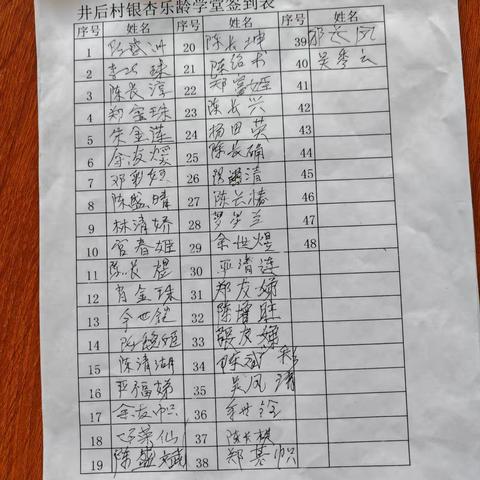 井后村银杏乐龄学堂签到表
序号 姓名 序号 姓名 序号 姓名
1 20 陈长坤 39 邓长凤
2 珠 21 陈绍书 40 吴秀云
3 陈长淳 22 郑富姬 41
4 郑宝珠 23 陈长兴 42
5 朱金莲 24 杨田英 43
6 余友媛 25 陈长确 44
7 邓彩 26 清 45
8 陈盛晴 27 陈长椿 46
9 林清娇 28 罗 兰 47
10 宫春姬 29 余世煌 48
11 陈长煌 30 巫清连
12 肖金珠 31 郑友娣
13 32 陈增胜
14 33 友娣
15 陈清湖 34 陈斌彩
16 巫福娣 35 吴凤清
17 余友帜 36 余世铨
18 仙 37 陈长棋
19 陈盛斌 38 郑基帜